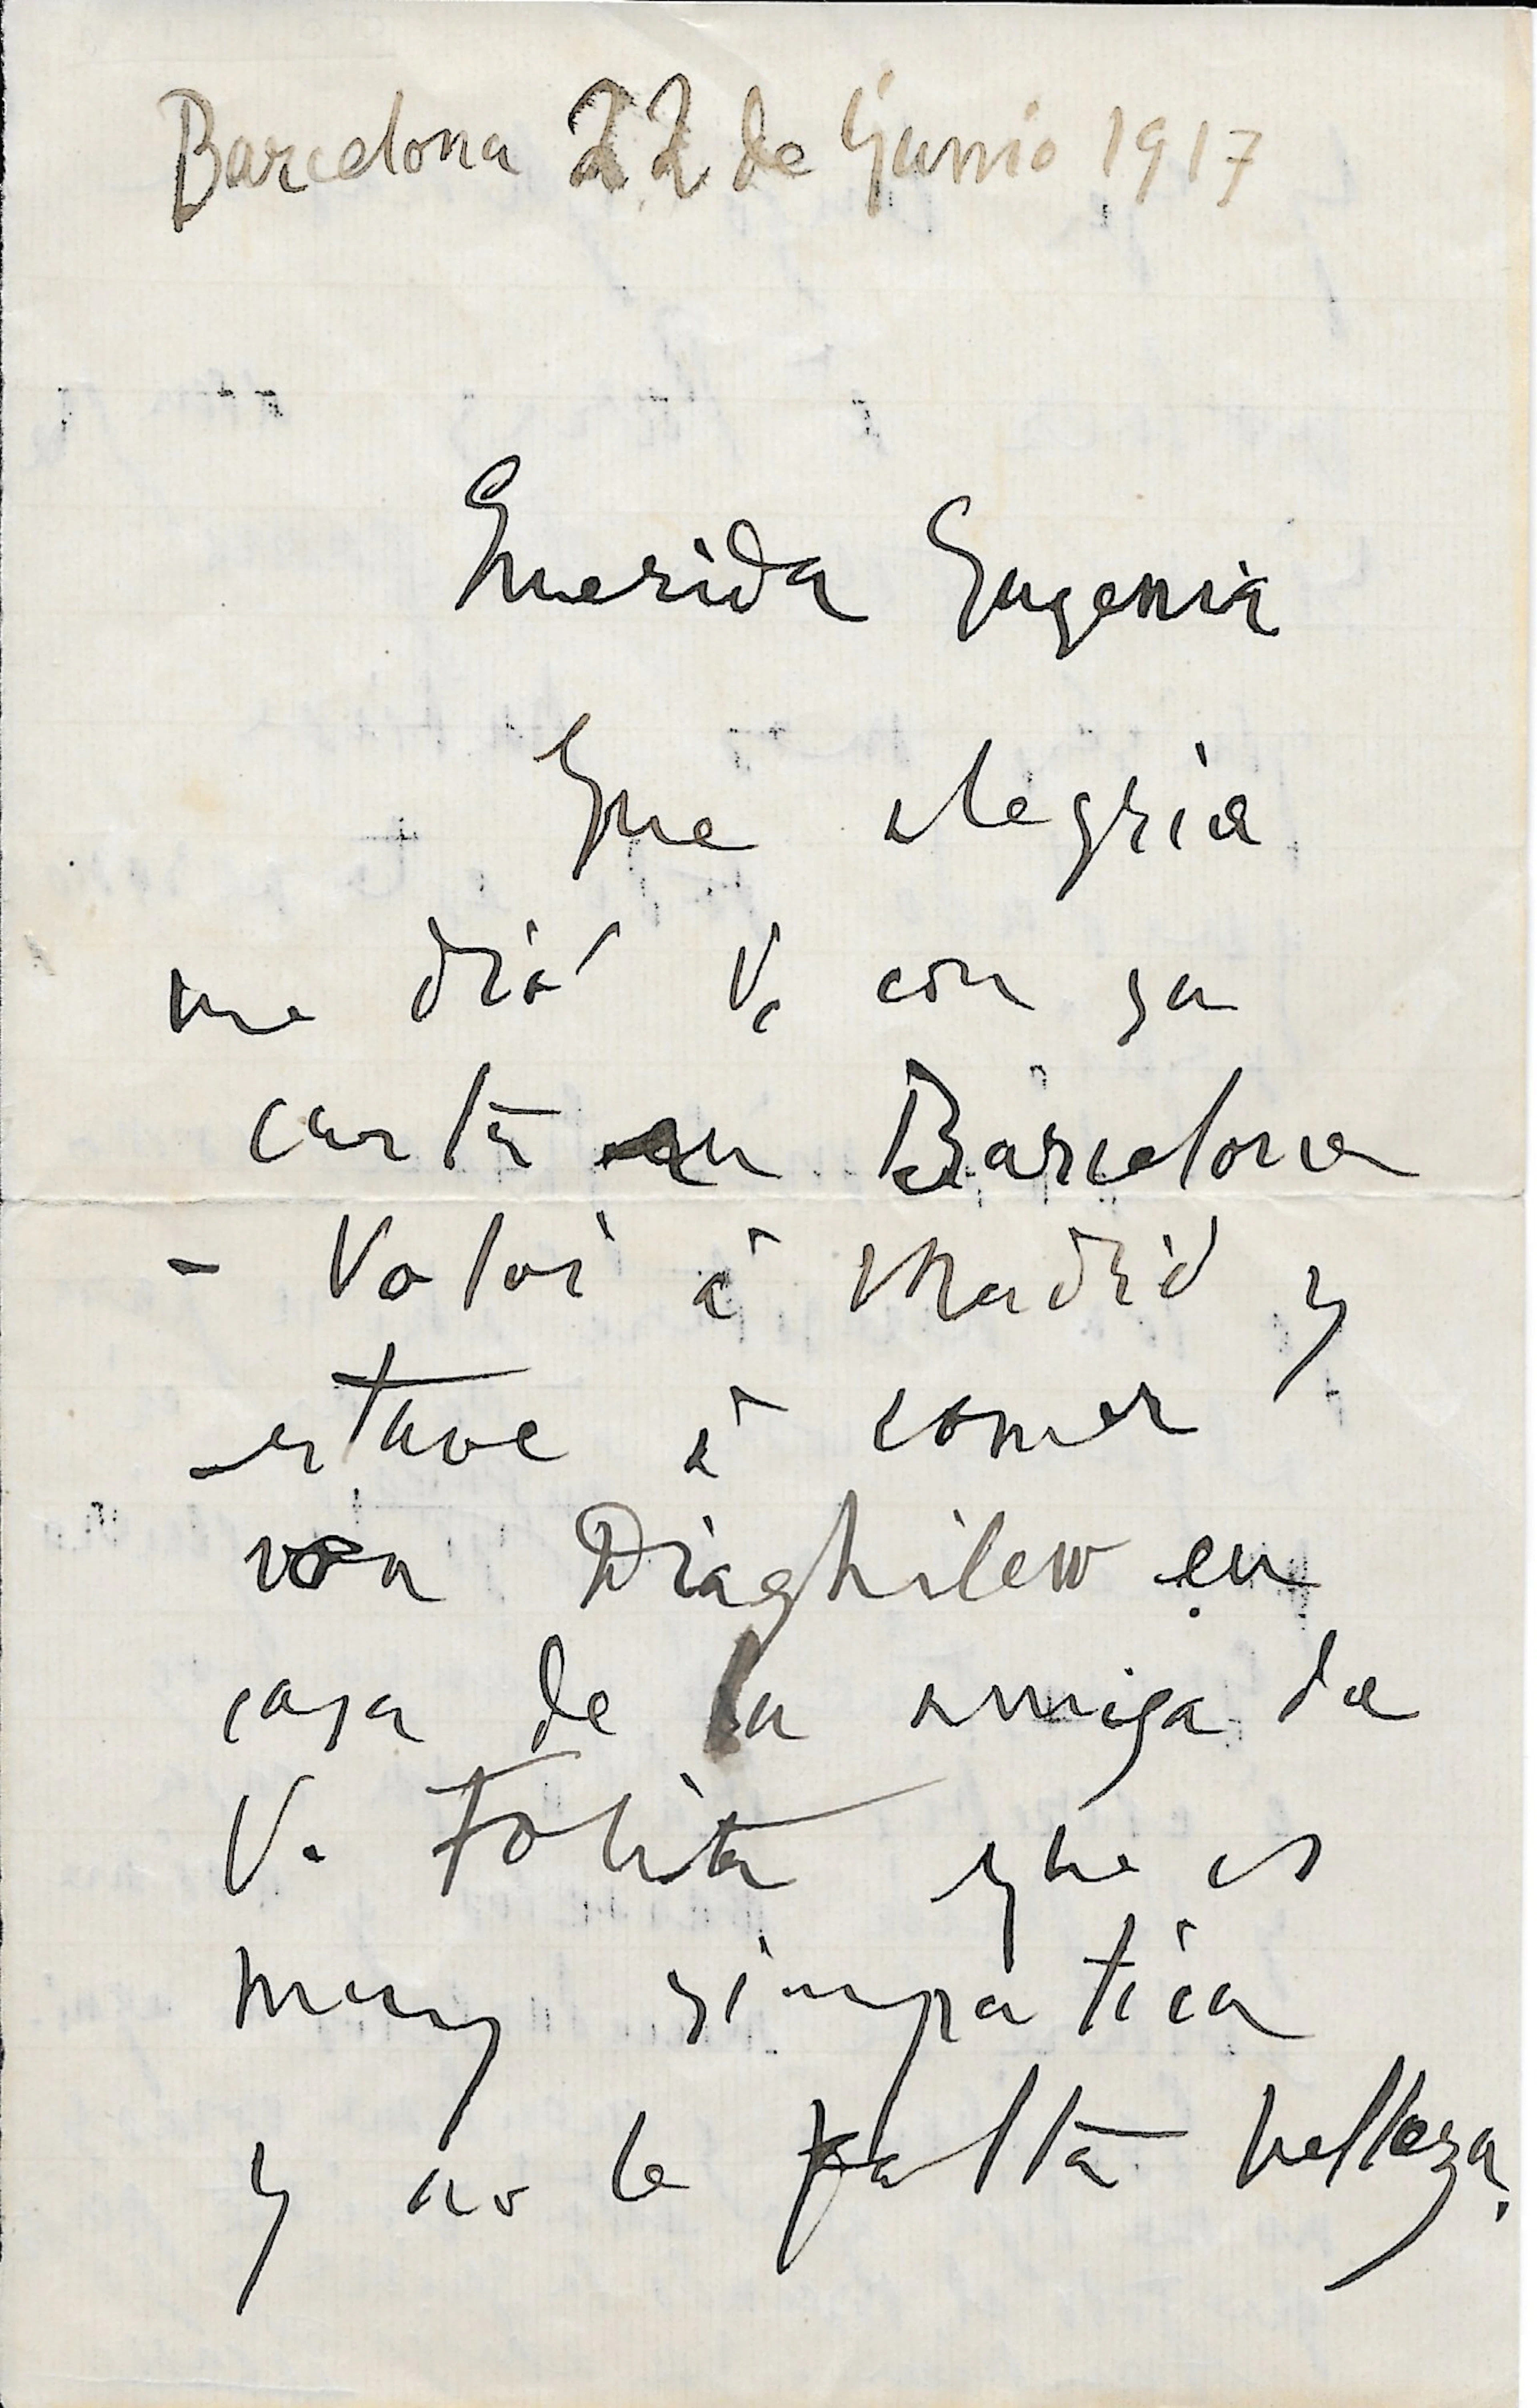 Barcelona 22 de Junio 1917
Querida Eugenia
Que alegria
me dió V. con su
carta en Barcelona
- Volví á Madrid y
estuve á comer
con Diaghilew en
casa de la amiga de
V. que es
muy simpatica
y no le falta belleza.